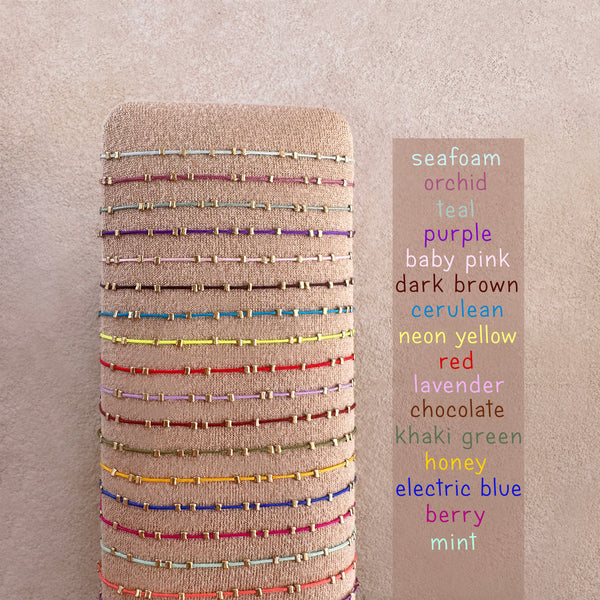 seafoam
orchid
teal
purple
baby pink
dark brown
cerulean
neon yellow
red
lavender
chocolate
khaki green
honey
electric blue
berry
mint